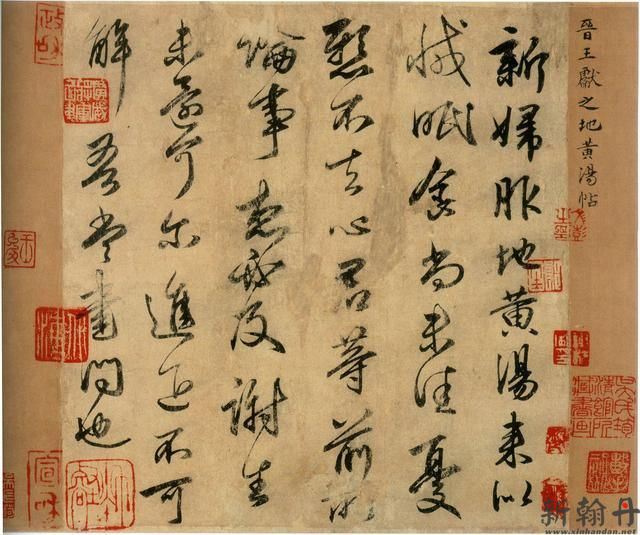 晉王獻之地黃湯帖
新婦服地黃湯來似
減眠食尚未佳憂
懸不去心君等前所
論事想必及謝生
未還可尔進退不可
解吾當書問也
政和
新翰丹
www.xinhandan.net